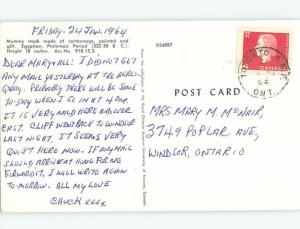 FRIDAY. 24 JAN. 1964
Mummy mask made of cartonnage, painted and
gilt. Egyptian, Ptolemaic Period (332-30 B. C.).
Height 18 inches. Acc. No. 910.15.3
DEAR MARY & ALL! I DID GET
ANY MAIL YESTERDAY AT THE AERO-
QUAY. PROBABLY THERE WILL BE SOME
TO-DAY WHEN I GO IN AT 4 P.M.
IT IS VERY MILD HERE AND OVER
CAST. CLIFF WENT BACK TO WINDSOR
LAST NIGHT. IT SEEMS VERY
QUIET HERE NOW. IF ANY MAIL
SHOULD ARRIVE AT HOME FOR ME
FORWARD IT, I WILL WRITE AGAIN
TO-MORROW. ALL MY LOVE
CHUCK xxxx
P54887
POST CARD
CANADA
TORONTO
ONT.
MRS MARY M. MCNAIR,
3749 POPLAR AVE,
WINDSOR, ONTARIO